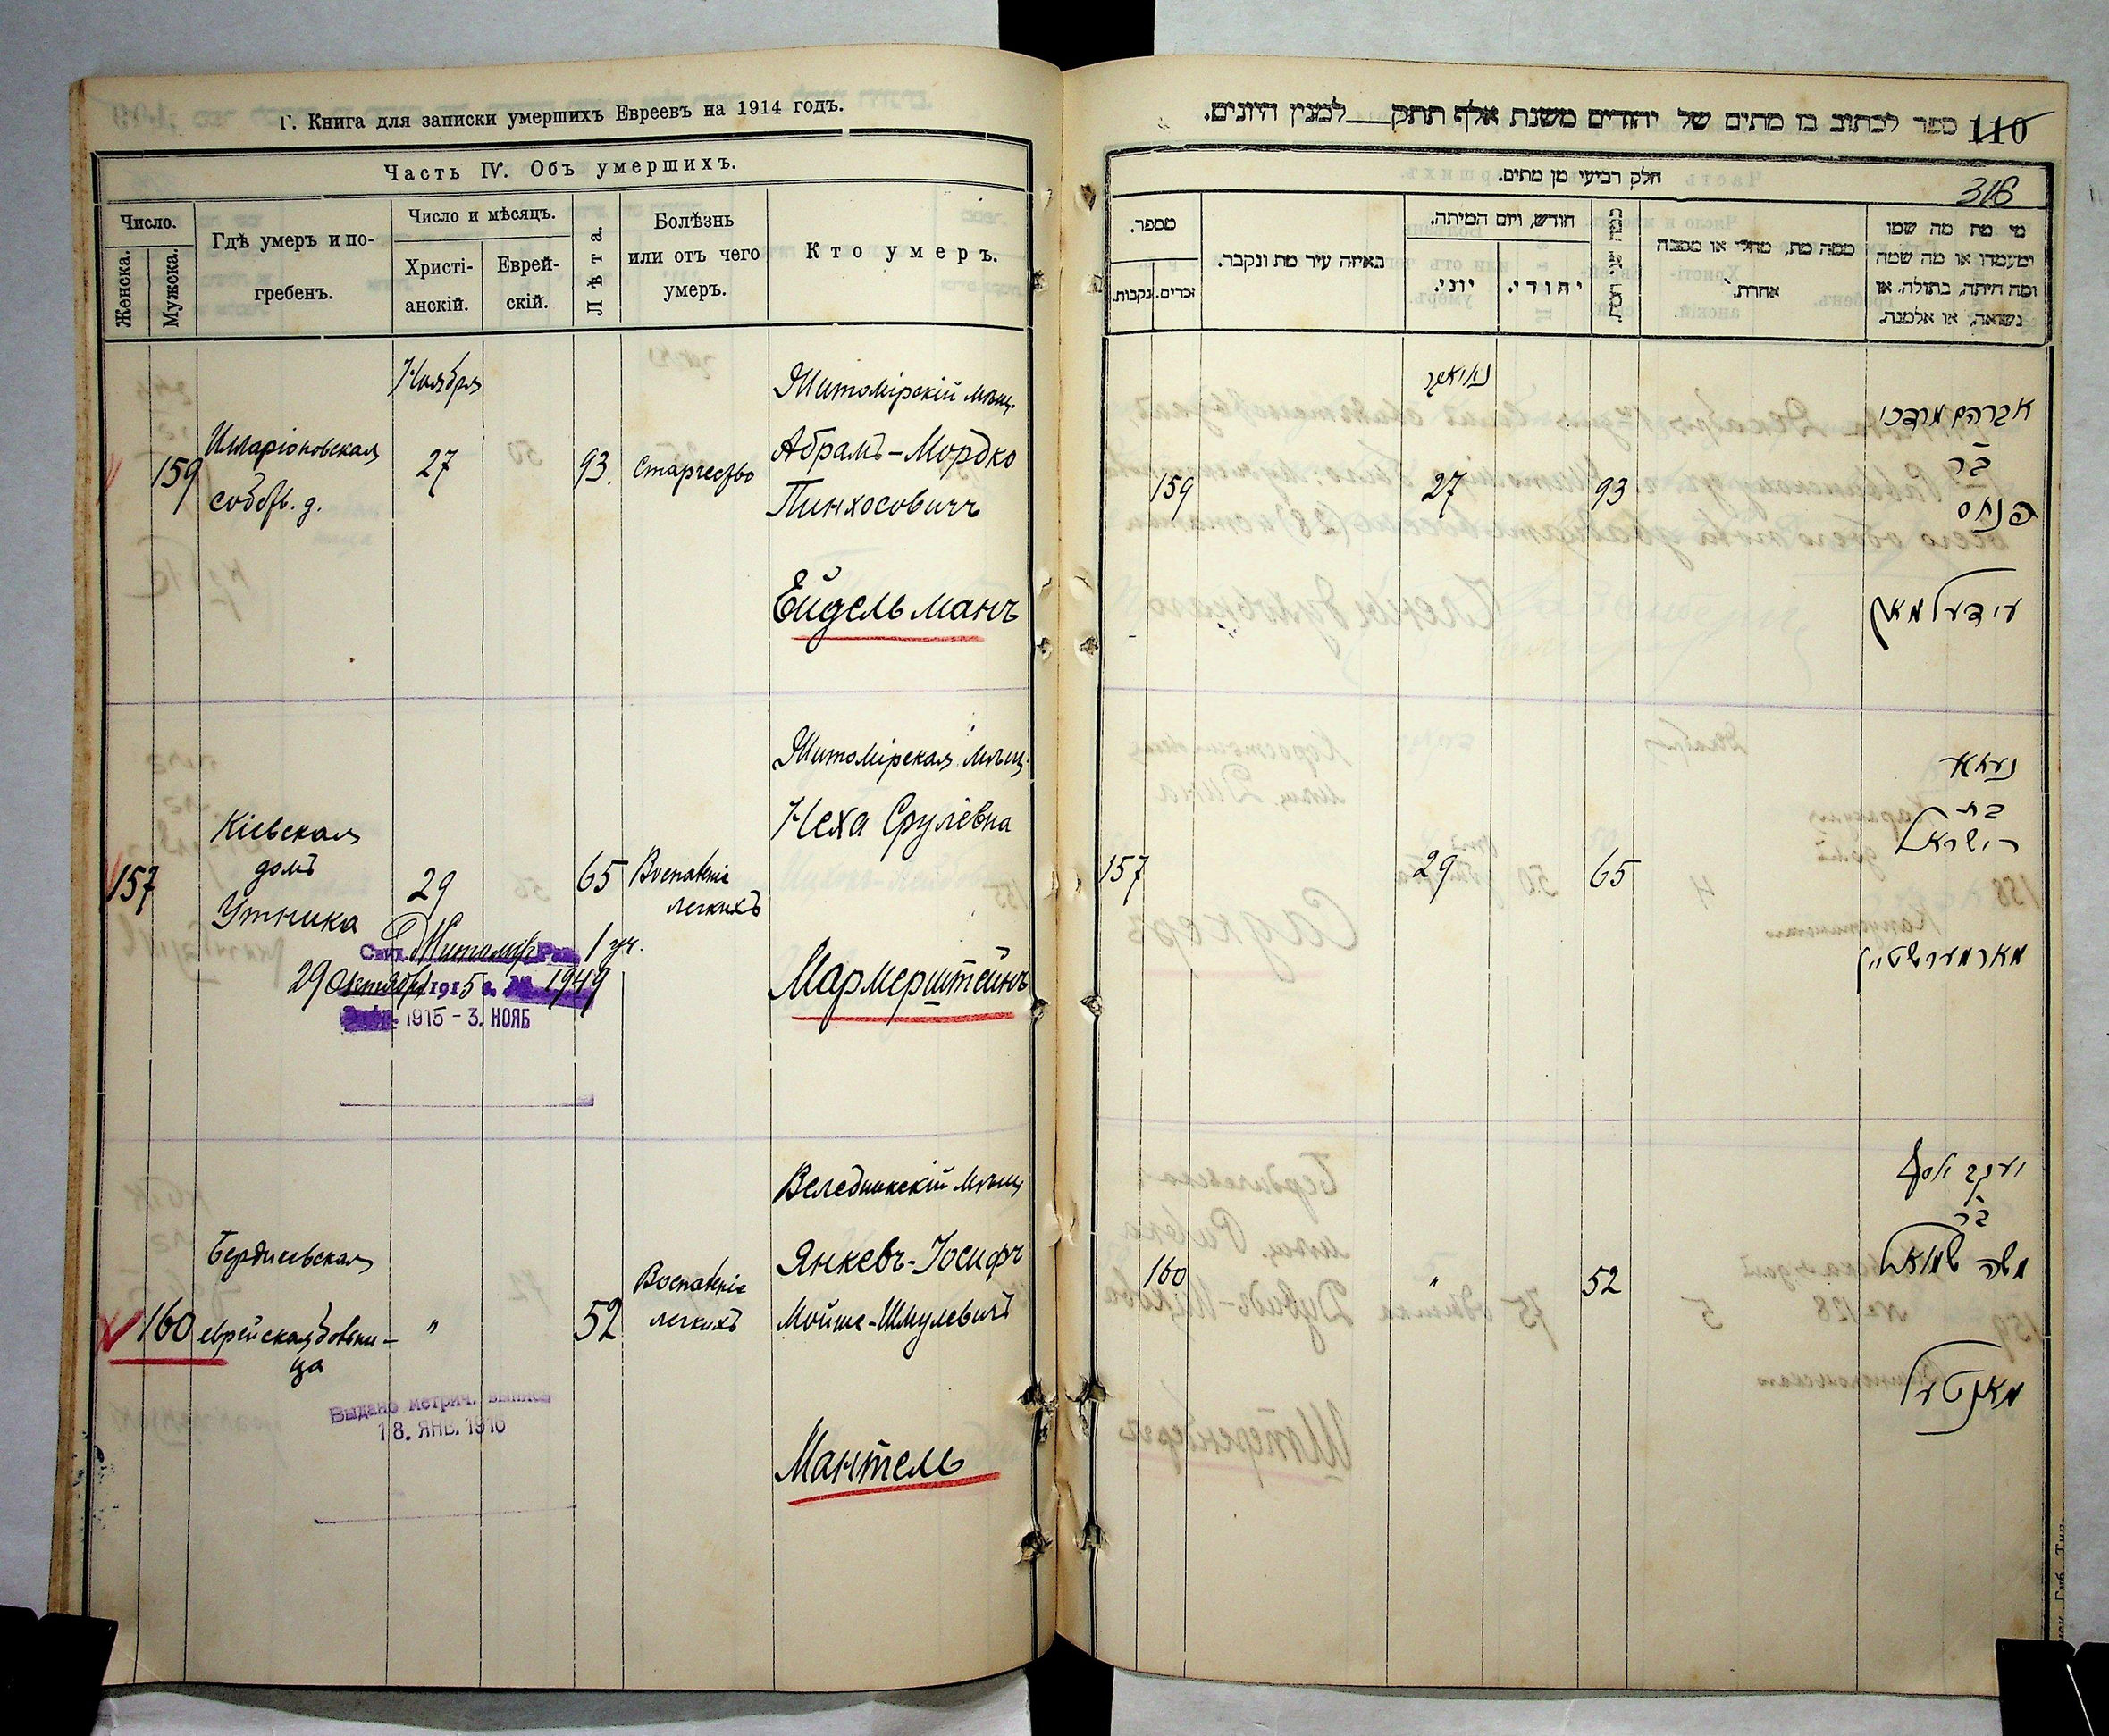 Г. Книга для записки умершихъ Евреевъ на 1914 годъ.
Часть IV. Объ умершихъ.
Число.
Женска.
Мужска.
Гдѣ умеръ и по-
гребенъ.
Число и мѣсяцъ.
Христі-
анскій.
Еврей-
скій.
Лѣта.
Болѣзнь
или отъ чего
умеръ.
Кто умеръ.
Ноября
159
Иларіоновская
собств. д.
27
93.
Старчество
Житомірскій мѣщ.
Абрамъ-Мордко
Пинхосовичъ
Ейдельманъ
157
Кіевская
домъ
Утника
29
65
Воспаленіе
легкихъ
Житомірская мѣщ.
Неха Срулевна
Мармерштейнъ
Свид. Житомір. Рав. 1 уч.
29 Октября 1915 г. № 1949
1915 - 3. НОЯБ
160
Бердичевская
еврейская больни-
ца
"
52
Воспаленіе
легкихъ
Веледникскій мѣщ
Янкевъ-Іосифъ
Мойше-Шмулевичъ
Мантель
Выдано метрич. выпись
18. ЯНВ. 1916
ספר לכתוב בו מתים של יהודים משנת אלף תתק למנין היונים.
110
חלק רביעי מן מתים.
316
מספר.
נקבות.
זכרים.
באיזה עיר מת ונקבר.
חודש, ויום המיתה.
יוני.
יהודי.
ממה מת, מחלי או מסבה
אחרת.
מי מת מה שמו
ומעמדו או מה שמה
ומה היתה, בתולה, או
נשואה, או אלמנה.
נאיאבר
159
27
93
אברהם מרדכי
בר
פנחס
עידעלמאן
157
29
65
נעחא
בת
ישראל
מארמערשטיין
160
"
52
יעקב יוסף
בר
משה שמואל
מאנטעל